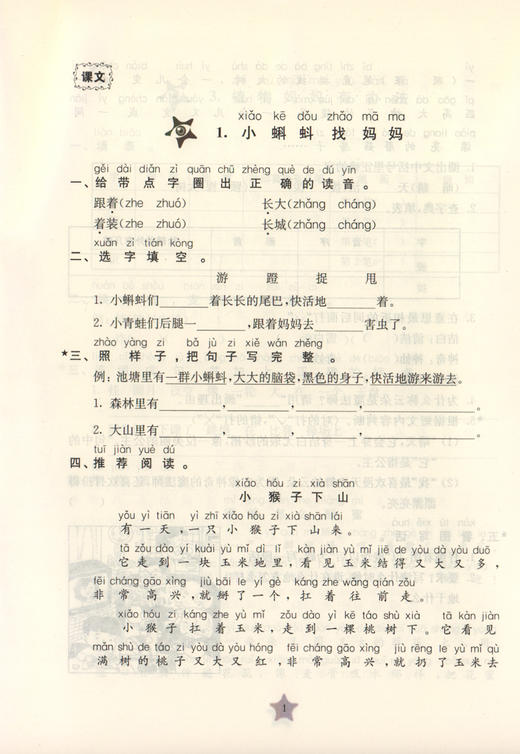 课文
xiǎo kē dǒu zhǎo mā ma
1. 小蝌蚪找妈妈
gěi dài diǎn zì quān chū zhèng què de dú yīn
一、给带点字圈出正确的读音。
跟着(zhe zhuó) 长大(zhǎng cháng)
着装(zhe zhuó) 长城(zhǎng cháng)
xuǎn zì tián kòng
二、选字填空。
游 蹬 捉 甩
1. 小蝌蚪们______着长长的尾巴，快活地______着。
2. 小青蛙们后腿一______，跟着妈妈去______害虫了。
zhào yàng zi bǎ jù zi xiě wán zhěng
*三、照样子，把句子写完整。
例：池塘里有一群小蝌蚪，大大的脑袋，黑色的身子，快活地游来游去。
1. 森林里有______，______，______，______。
2. 大山里有______，______，______，______。
tuī jiàn yuè dú
四、推荐阅读。
xiǎo hóu zi xià shān
小猴子下山
yǒu yì tiān yì zhī xiǎo hóu zi xià shān lái
有一天，一只小猴子下山来。
tā zǒu dào yí kuài yù mǐ dì lǐ kàn jiàn yù mǐ jiē de yòu dà yòu duō
它走到一块玉米地里，看见玉米结得又大又多，
fēi cháng gāo xìng jiù bāi le yí gè káng zhe wǎng qián zǒu
非常高兴，就掰了一个，扛着往前走。
xiǎo hóu zi káng zhe yù mǐ zǒu dào yì kē táo shù xià tā kàn jiàn
小猴子扛着玉米，走到一棵桃树下。它看见
mǎn shù de táo zi yòu dà yòu hóng fēi cháng gāo xìng jiù rēng le yù mǐ qù
满树的桃子又大又红，非常高兴，就扔了玉米去
1